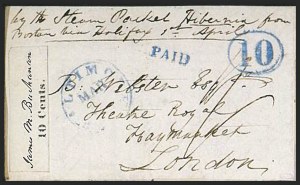 by the Steam Packet Hibernia from
Boston via Halifax 1st April
PAID
10
James M. Buchanan
10 Cents.
MAR
B. Webster Esqr
Theatre Royal
Haymarket
London